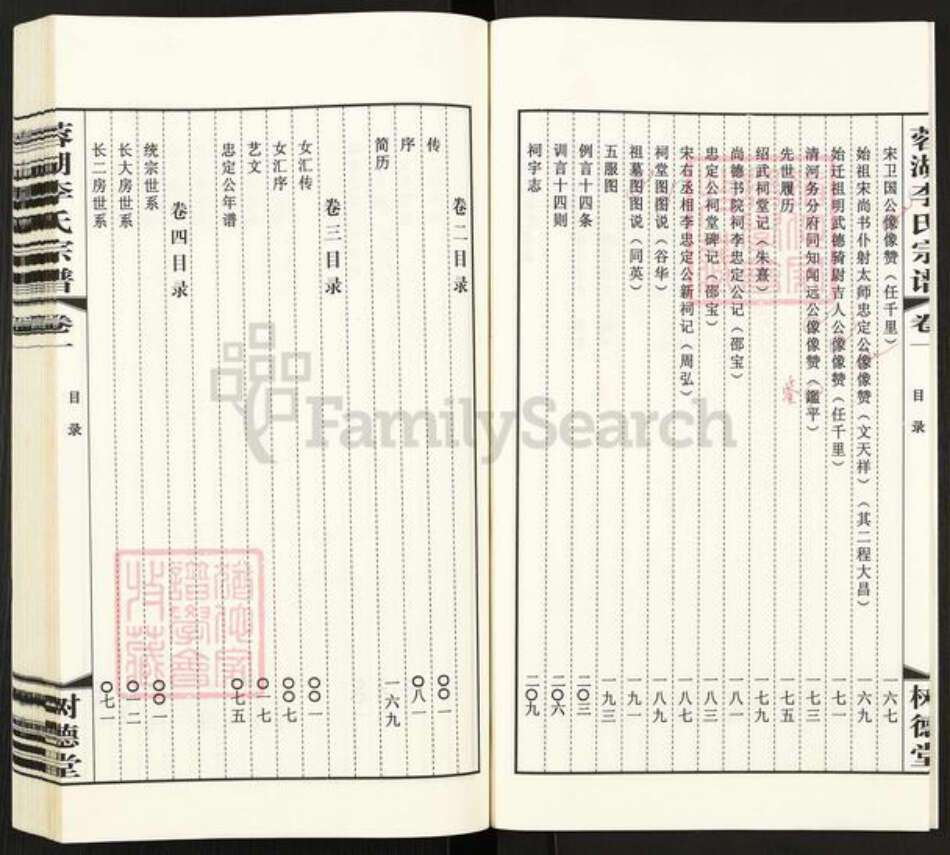 蓉湖李氏宗谱
卷一
目录
树德堂
宋卫国公像像赞（任千里） 一六七
始祖宋尚书仆射太师忠定公像像赞（文天样）（其二程大昌） 一六九
始迁祖明武德骑尉吉人公像像赞（任千里） 一七一
清河务分府同知闻远公像像赞（鑑平） 一七三
先世履历 一七五
绍武祠堂记（朱熹） 一七九
尚德书院祠李忠定公记（邵宝） 一八一
忠定公祠堂碑记（邵宝） 一八三
宋右丞相李忠定公新祠记（周弘） 一八七
祠堂图图说（谷华） 一八九
祖墓图图说（同英） 一九一
五服图 一九三
例言十四条 二〇三
训言十四则 二〇六
祠宇志 二〇九
卷二目录
传 〇〇一
序 〇八一
简历 一六九
卷三目录
女汇传 〇〇一
女汇序 〇〇七
艺文 〇一七
忠定公年谱 〇七五
卷四目录
统宗世系 〇〇一
长大房世系 〇一二
长二房世系 〇七一
蓉湖李氏宗谱
卷一
目录
树德堂
FamilySearch